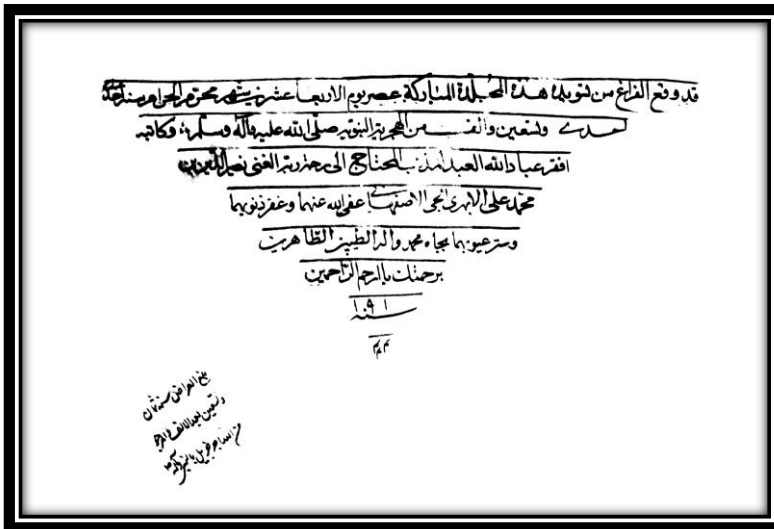 قد وقع الفراغ من تسويد هذه المجلدة المباركة عصر يوم الاربعا عشرين شهر محرم الحرام سنة احدى
وتسعين والف من الهجرية النبوية صلى الله عليه وآله وسلم وكاتبه
افقر عباد الله العبد المذنب المحتاج الى رحمة ربه الغنى نصير الدين بن
محمد على الابهرى الاصفهانى عفى الله عنهما وغفر ذنوبهما
وستر عيوبهما بجاه محمد وآله الطيبين الطاهرين
برحمتك يا ارحم الراحمين
١٩١
سنه
ممم
بلغ العراض سنة ثمان
وتسعين بعد الالف